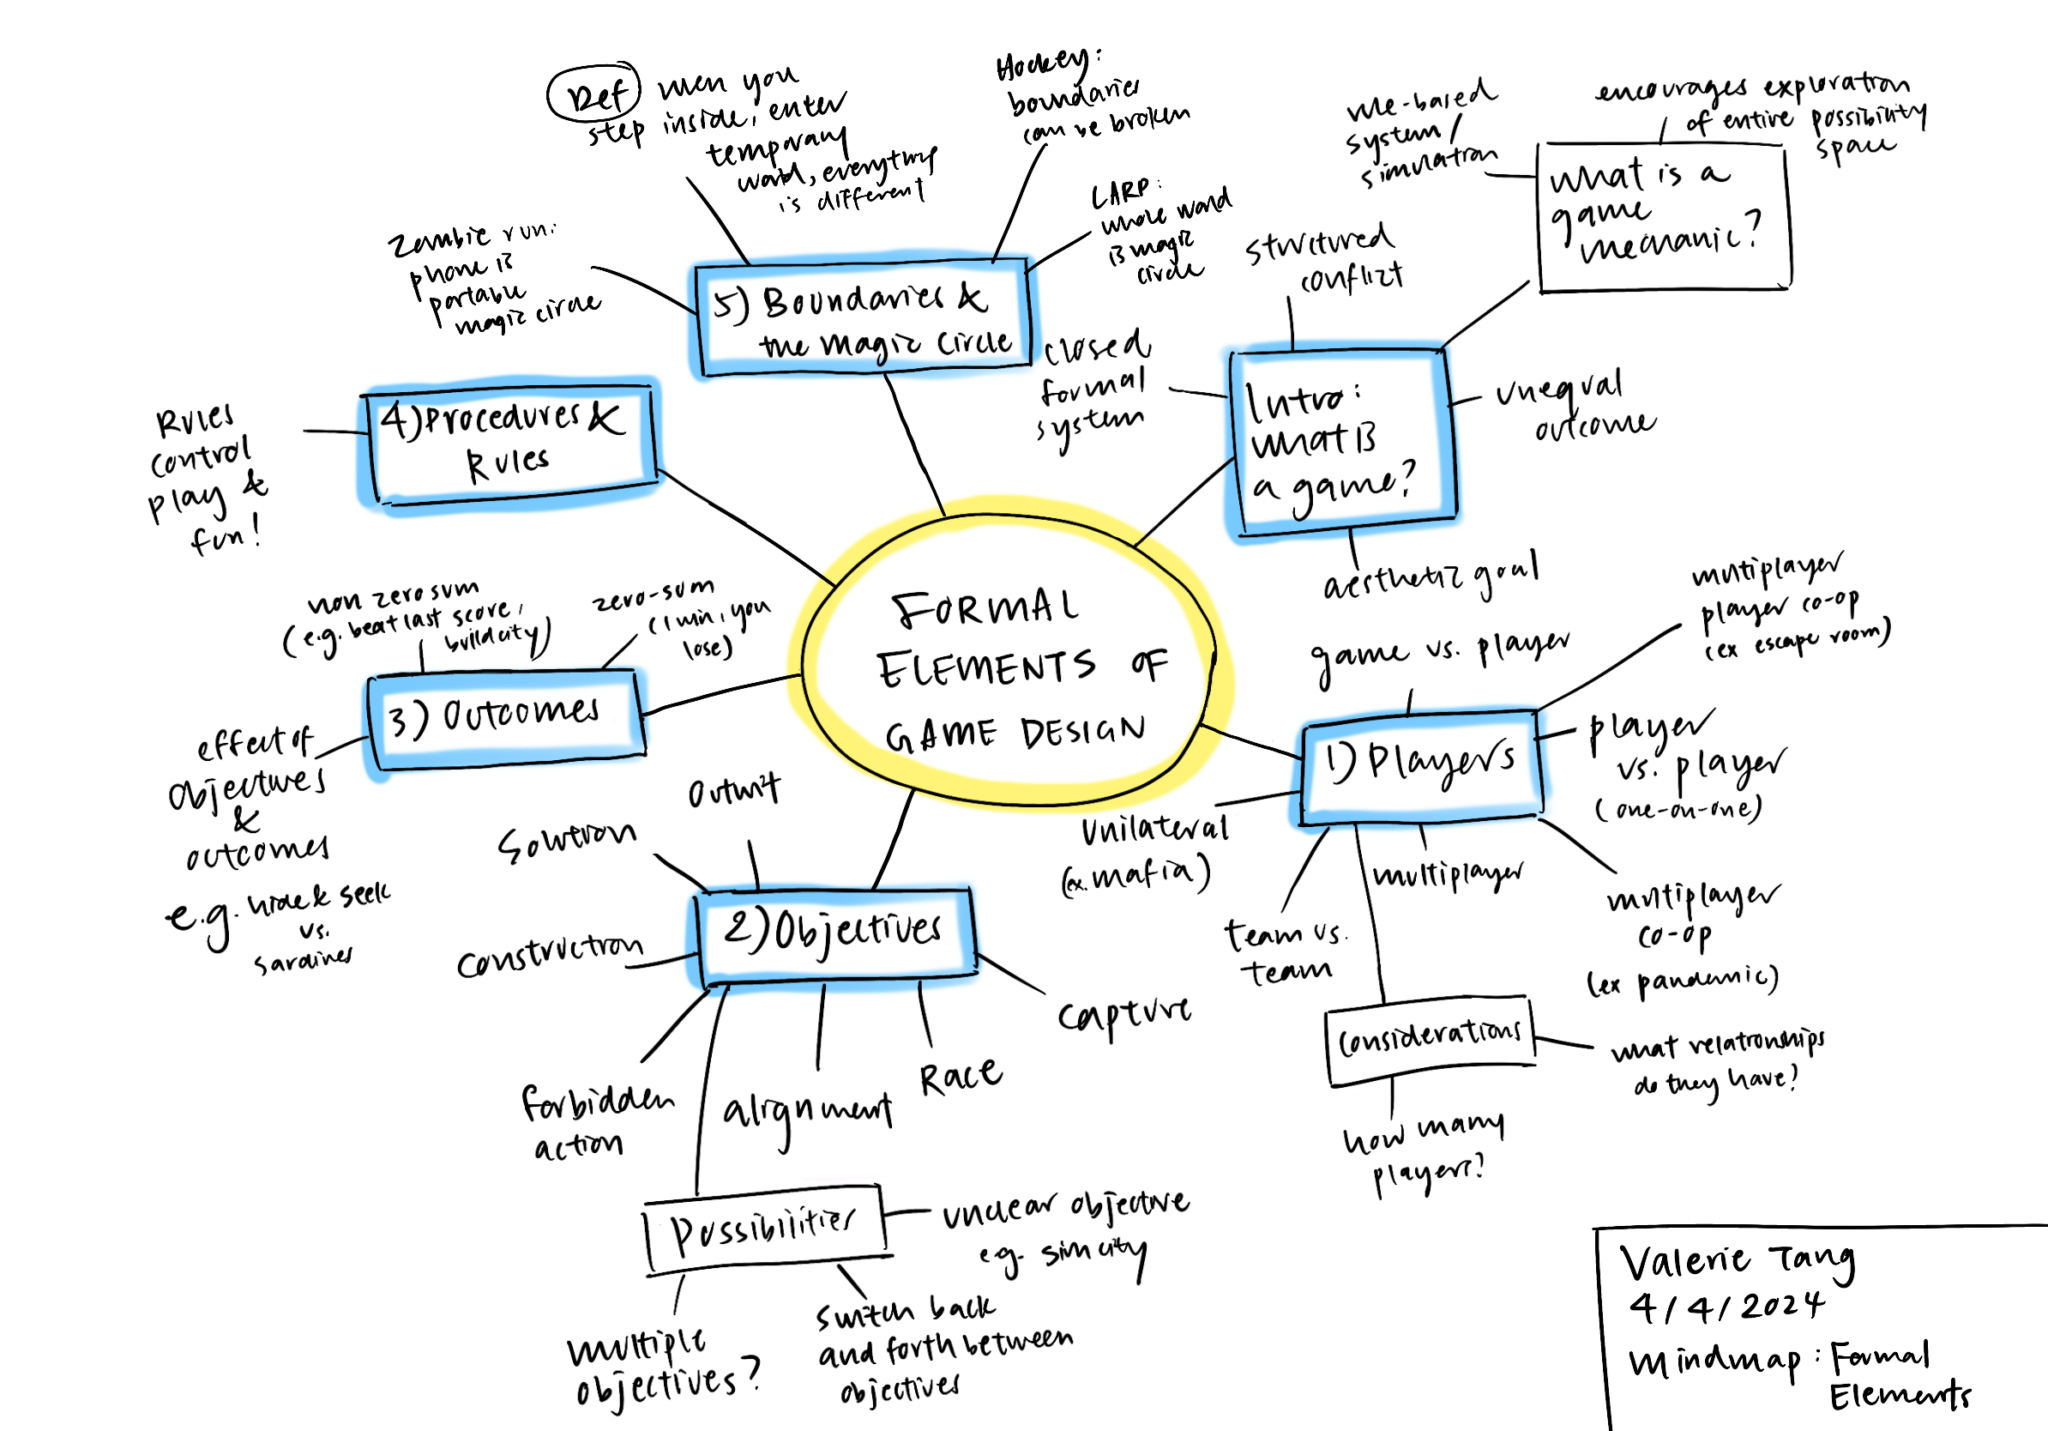 FORMAL
ELEMENTS OF
GAME DESIGN
Intro:
what is
a game?
structured
conflict
closed
formal
system
unequal
outcome
aesthetic goal
what is a
game
mechanic?
rule-based
system/
simulation
encourages exploration
of entire possibility
space
1) Players
game vs. player
multiplayer
player co-op
(ex escape room)
player
vs. player
(one-on-one)
multiplayer
co-op
(ex pandemic)
multiplayer
team vs.
team
unilateral
(ex. mafia)
considerations
what relationships
do they have?
how many
players?
2) Objectives
Outwit
Solution
construction
forbidden
action
alignment
Race
capture
Possibilities
unclear objective
e.g. simcity
switch back
and forth between
objectives
multiple
objectives?
3) Outcomes
non zero sum
(e.g. beat last score,
build city)
zero-sum
(I win, you
lose)
effect of
objectives
&
outcomes
e.g. hide & seek
vs.
sardines
4) Procedures &
Rules
Rules
control
play &
fun!
5) Boundaries &
the magic circle
Def when you
step inside, enter
temporary
world, everything
is different
Hockey:
boundaries
can be broken
LARP:
whole world
is magic
circle
Zombie run:
phone is
portable
magic circle
Valerie Tang
4/4/2024
Mindmap: Formal
Elements